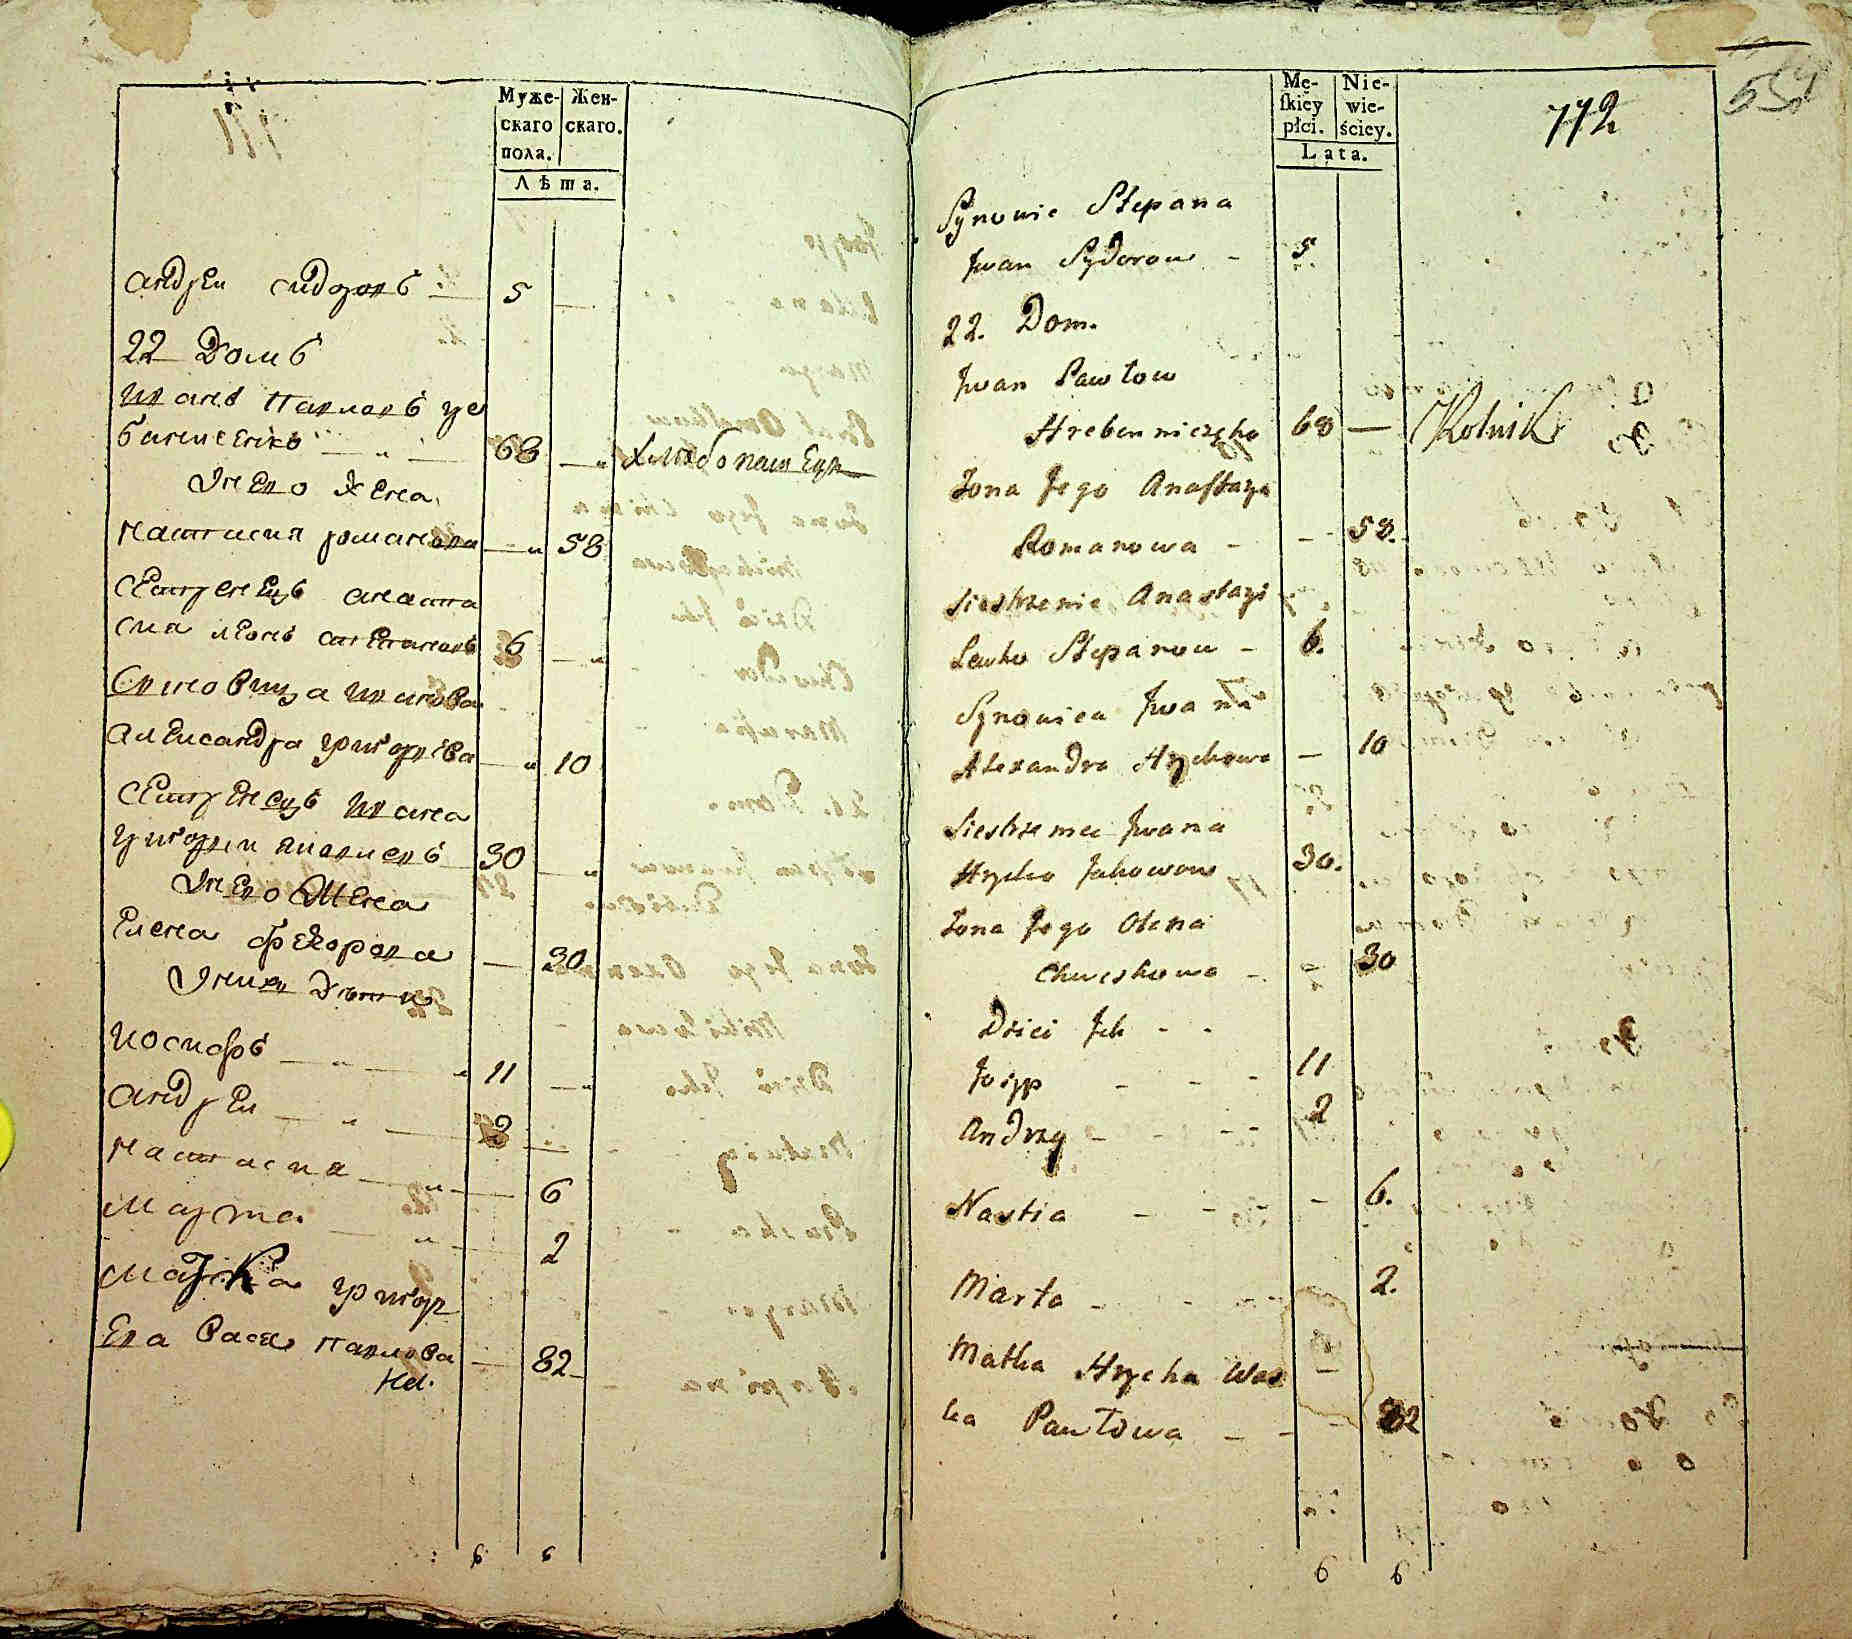 Муже-
скаго
пола.
Жен-
скаго.
Лѣта.
андреи сидоровъ 5 —
22 Домъ
Иванъ Павловъ гре
биниченко — " — 68 — " хлѣбопашецъ
Инево жена
Настасия романова — " 58
сестренецъ анаста
сиа левко степановъ 6 — "
Синовица Иванова
александра григориева — " 10
сестренецъ Ивана
григореи яковлевъ 30 — "
Инево жена
елена федорова — 30
Инихъ дѣти
иосифъ — " — " 11 — "
андреи — " — 2 —
настасия — " — 6
марта — " — 2
матка григор
ева васа павлова — 82
6 6
Mę-
skiey
płci.
Nie-
wie-
ściey.
Lata.
772
Synowie Stepana
Jwan Sydorow - 5.
22. Dom.
Jwan Pawłow
Hrebenniczeko 68 — Rolnik
Żona Jego Anastazya
Romanowa - - 58.
Siestrzenie Anastazi
Lewko Stepanow - 6.
Synowica Jwana
Alexandra Hrychowa — 10
Siestrzeniec Jwana
Hrycko Jakowow 30.
Żona Jego Olena
Chweskowa - 30
Dzieci Jch - -
Josyp - - - 11
Andrzy - - - - 2
Nastia - - - 6.
Marta - - - 2.
Matka Hrycka Was
ka Pawłowa - - - 82
6 6